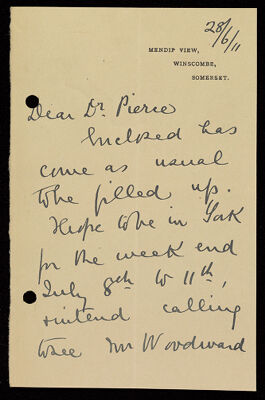 28/6/11
MENDIP VIEW,
WINSCOMBE,
SOMERSET.
Dear Dr. Pierce
Enclosed has
come as usual
to be filled up.
Hope to be in York
for the week end
July 8th to 11th,
& intend calling
to see Mr Woodward